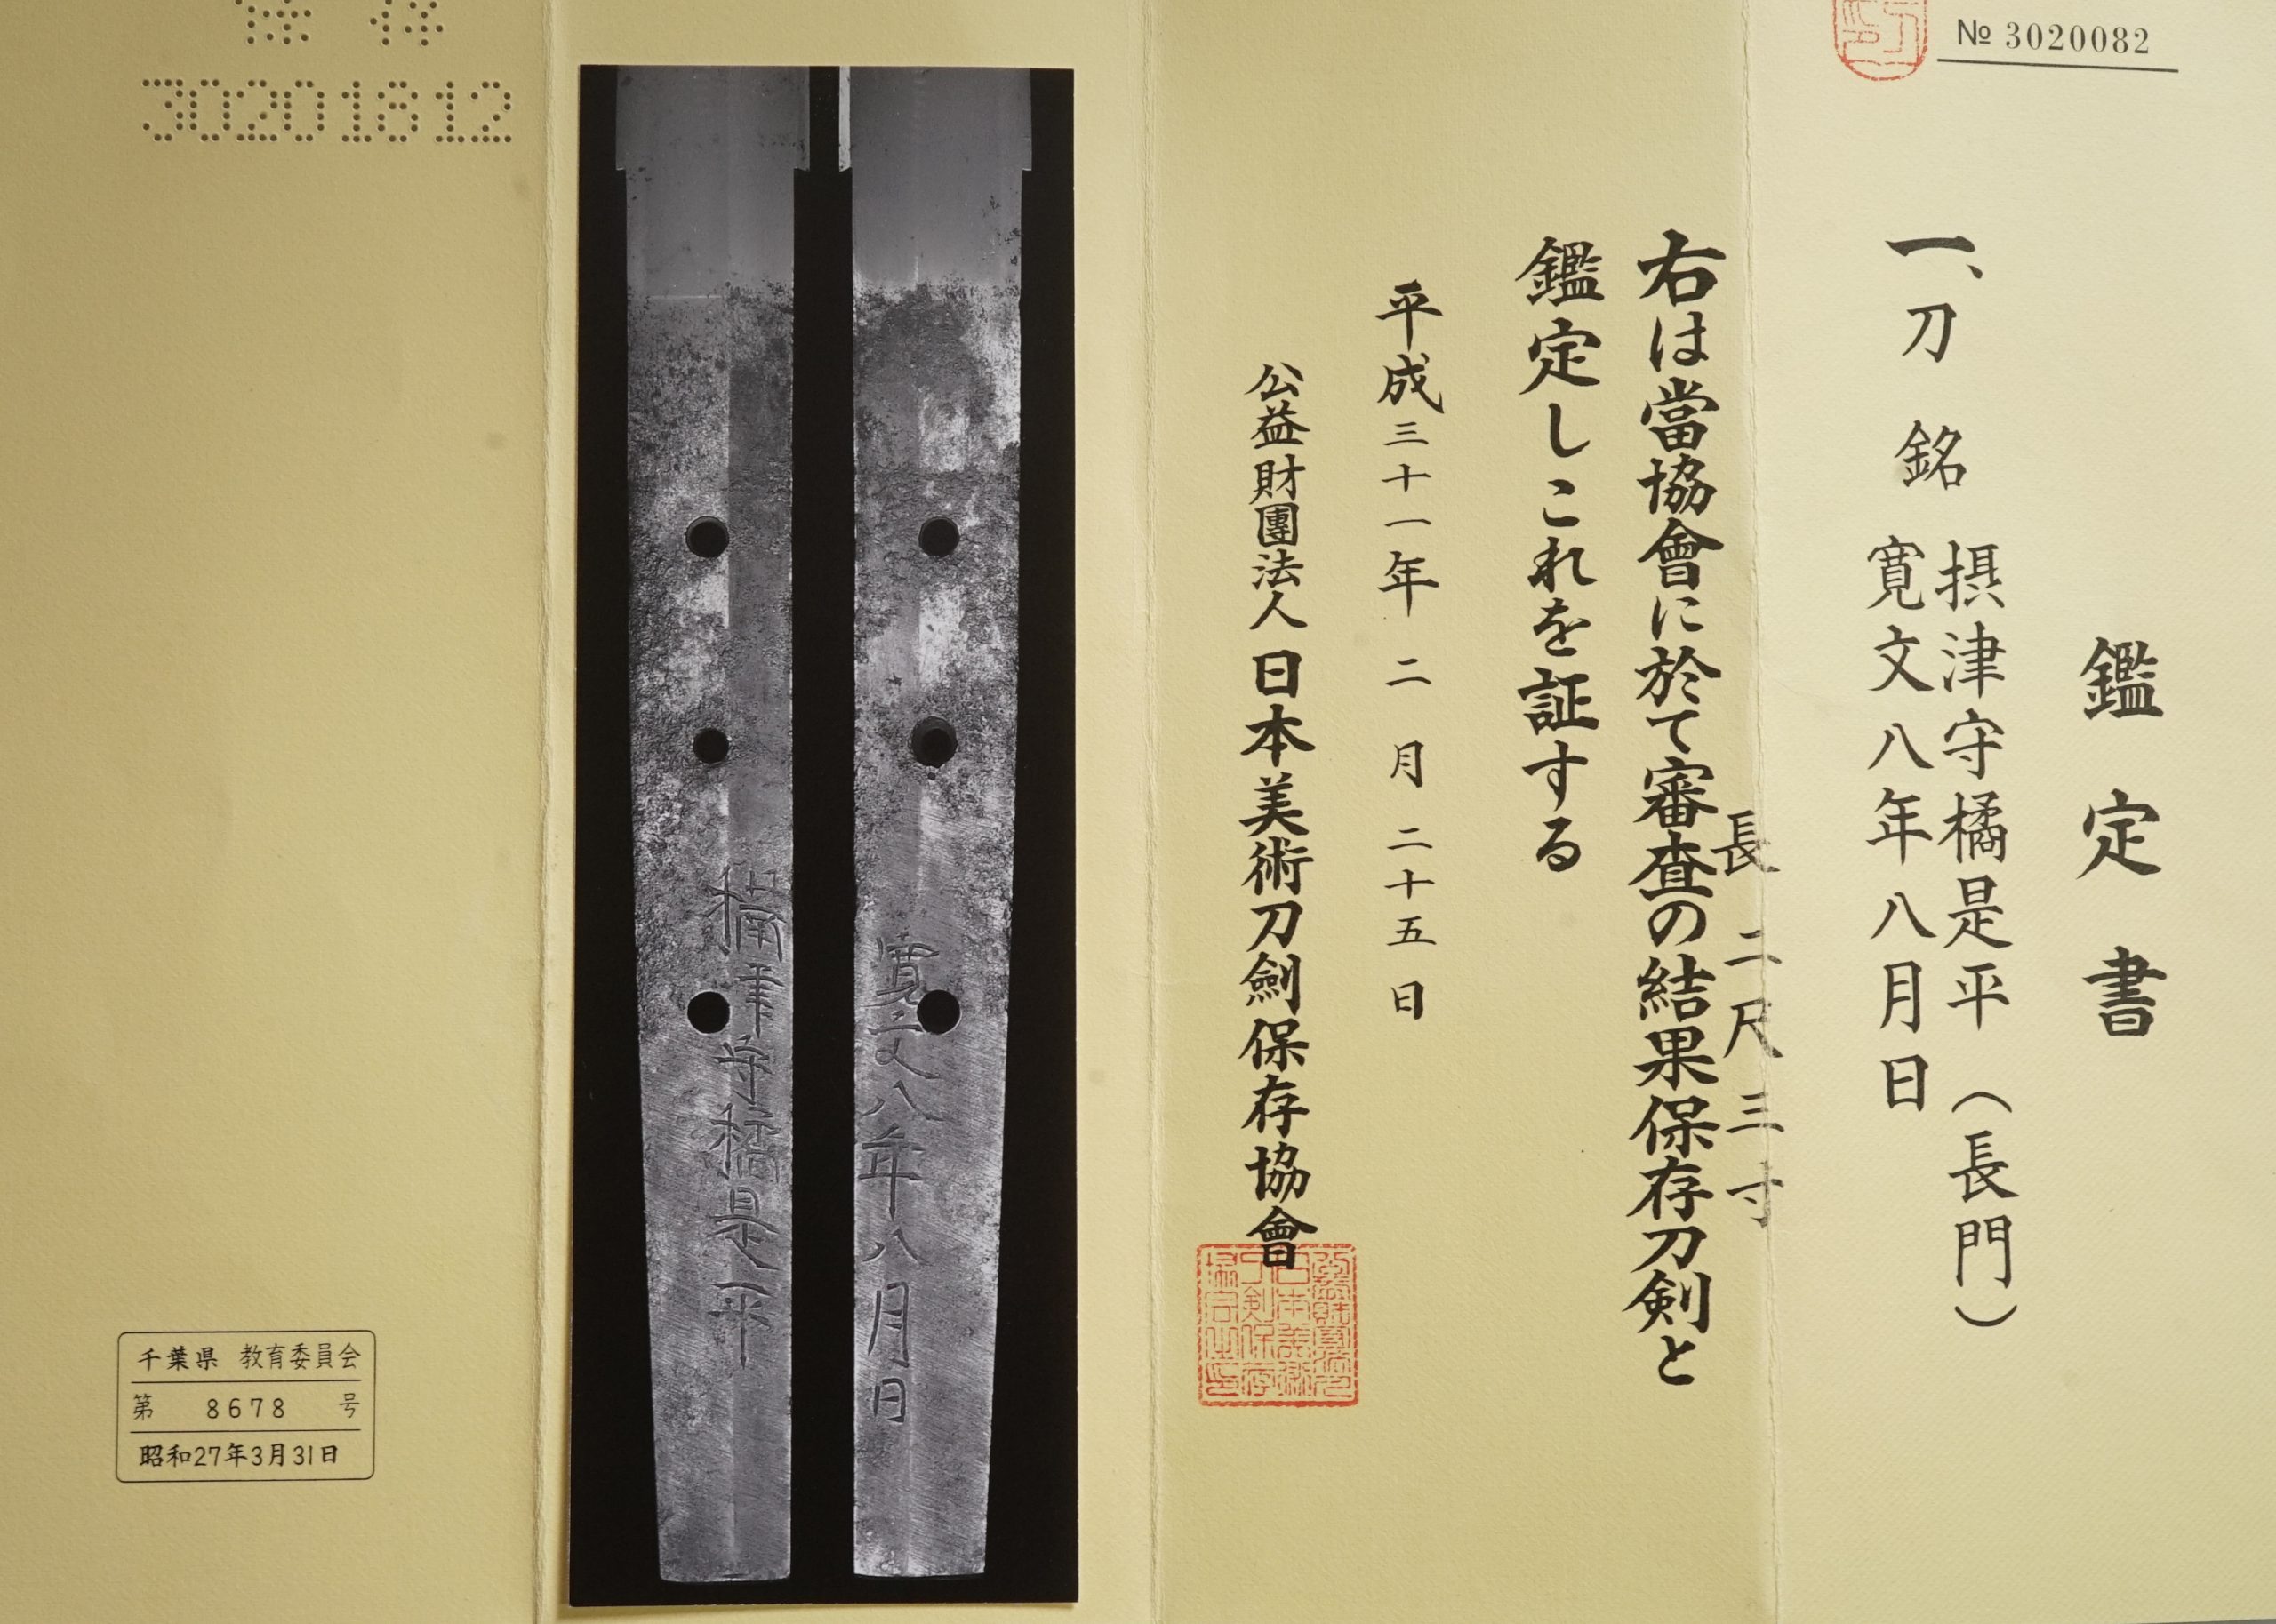 № 3020082
鑑定書
一、刀 銘 摂津守橘是平(長門)
寛文八年八月日
長 二尺三寸
右は當協會に於て審査の結果保存刀剣と
鑑定しこれを証する
平成三十一年 二月 二十五日
公益財團法人 日本美術刀劍保存協會
寛文八年八月日
摂津守橘是平
保存
30201612
千葉県 教育委員会
第 8678 号
昭和27年3月31日